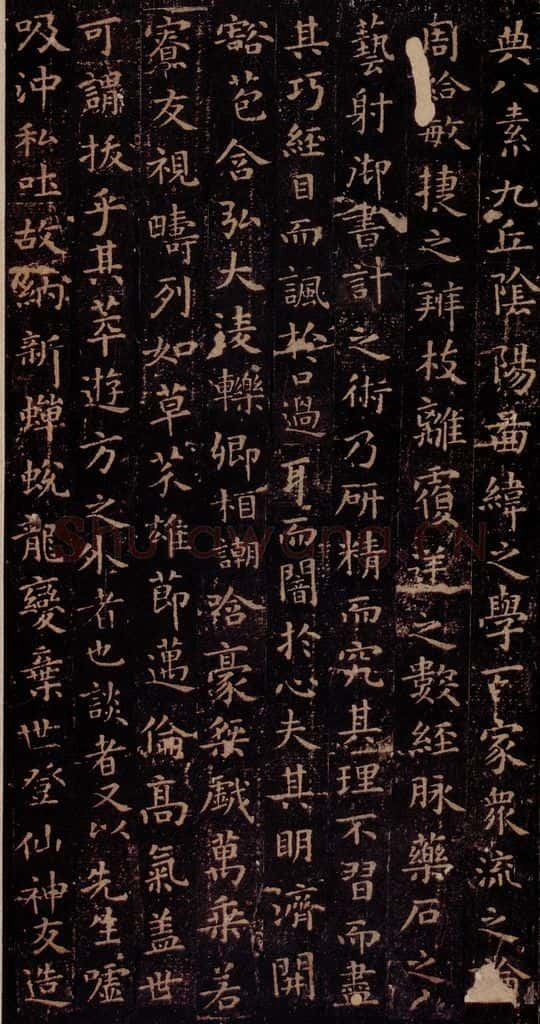 典八素九丘陰陽啚緯之學百家衆流之論
周給敏捷之辨枝離覆逆之數經脉藥石之
藝射御書計之術乃研精而究其理不習而盡
其巧經目而諷於口過耳而闇於心夫其明濟開
豁苞含弘大淩轢卿相謿哈豪桀戱萬乘若
寮友視疇列如草芥雄節邁倫高氣盖世
可謂拔乎其萃遊方之外者也談者又以先生噓
吸沖和吐故納新蟬蛻龍變棄世登仙神友造
Shufawang.CN